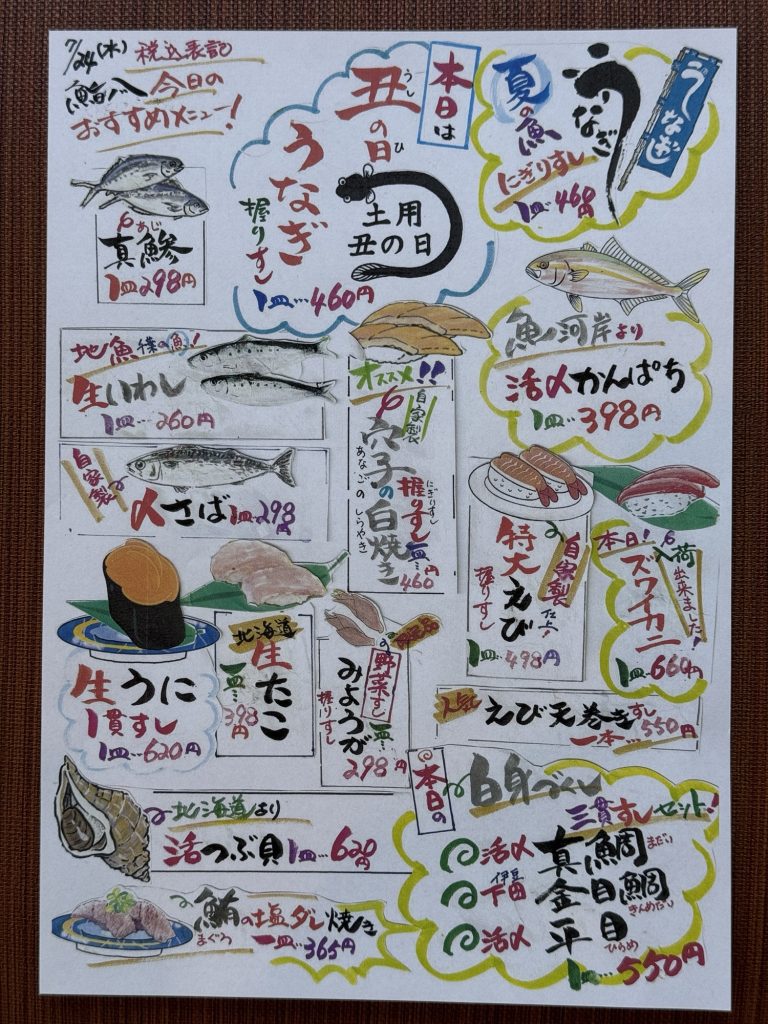 7/24(木) 税込表記
鮨八 今日の
おすすめメニュー!
本日は
丑の日
うし
ひ
うなぎ
握りすし
1皿…460円
土用
丑の日
うなぎ
うなぎ
夏の魚
にぎりすし
1皿…460円
真鯵
あじ
1皿298円
魚河岸より
活〆かんぱち
1皿…398円
地魚
!
生いわし
1皿…260円
自家製
〆さば 1皿…298円
オススメ!!
自家製
穴子の白焼き
あなごのしらやき
握りすし
にぎりすし
一皿…460
特大えび
自家製
仕込み
握りすし
1皿…498円
本日!入荷
出来ました!
ズワイカニ
1皿…660円
生うに
1貫すし
1皿…620円
北海道
生たこ
一皿…
398円
野菜すし
みょうが
握りすし
一皿…
298円
人気
えび天巻きすし
一本…550円
北海道より
活つぶ貝 1皿…620円
鮪の塩ダレ焼き
まぐろ
一皿…365円
本日の
白身づくし
三貫すしセット!
活〆 真鯛 まだい
伊豆
下田 金目鯛 きんめだい
活〆 平目 ひらめ
1皿…550円